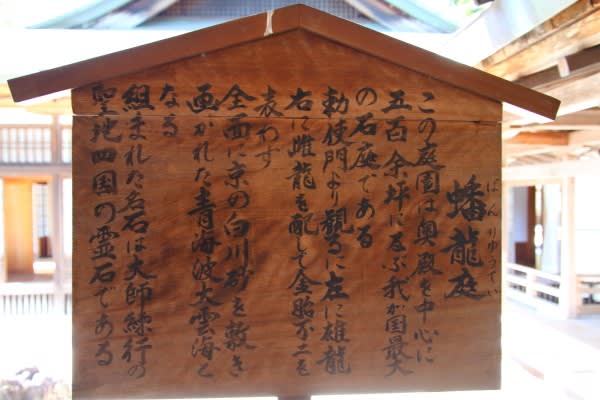 蟠龍庭
ばんりゅうてい
この庭園は奥殿を中心に
五百余坪に及ぶ我が国最大
の石庭である
勅使門より観るに左に雄龍
右に雌龍を配して金胎不二を
表わす
全面に京の白川砂を敷き
画かれた青海波大雲海と
なる
組まれた名石は大師練行の
聖地四国の霊石である